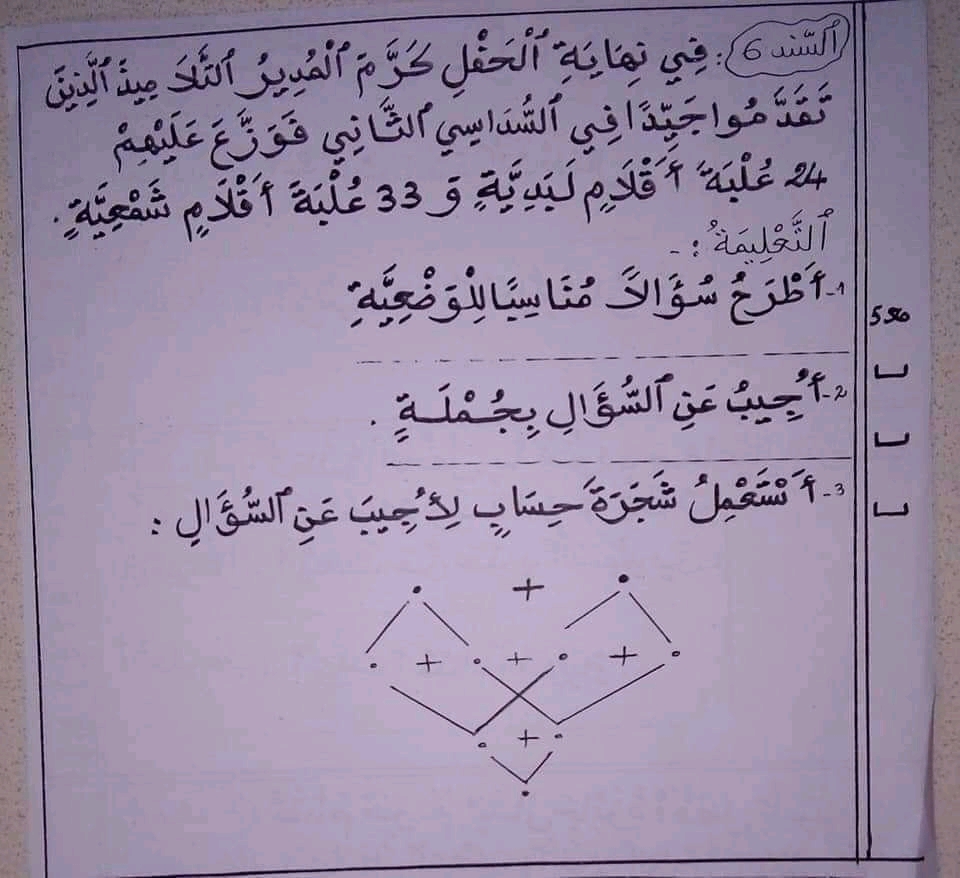 السَّند 6 : فِي نِهَايَةِ ٱلْحَفْلِ كَرَّمَ ٱلْمُدِيرُ ٱلتَّلَامِيذَ ٱلَّذِينَ
تَقَدَّمُوا جَيِّدًا فِي ٱلسُّدَاسِي ٱلثَّانِي فَوَزَّعَ عَلَيْهِمْ
24 عُلْبَةَ أَقْلَامٍ لَبَدِيَّةٍ وَ 33 عُلْبَةَ أَقْلَامٍ شَمْعِيَّةٍ .
ٱلتَّعْلِيمَةُ : -
1- أَطْرَحُ سُؤَالاً مُنَاسِبًا لِلْوَضْعِيَّةِ
2- أُجِيبُ عَنِ ٱلسُّؤَالِ بِجُمْلَةٍ .
3- أَسْتَعْمِلُ شَجَرَةَ حِسَابٍ لِأُجِيبَ عَنِ ٱلسُّؤَالِ :
+
+ + +
+